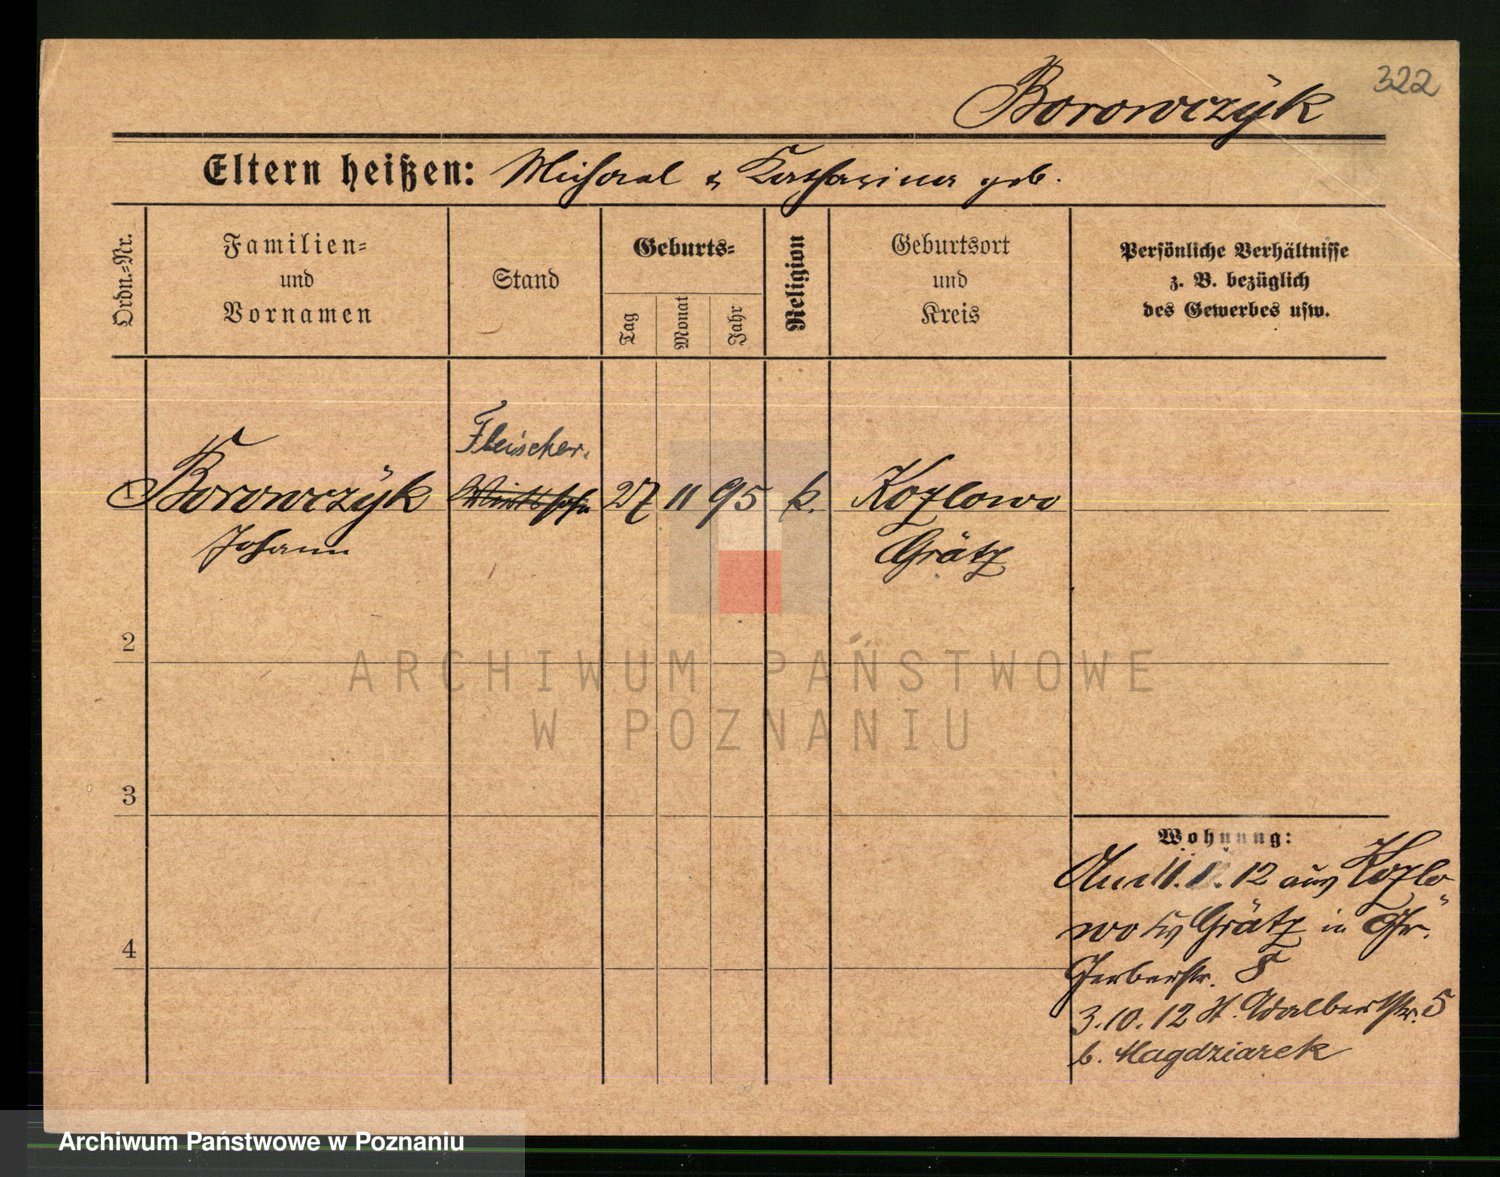 322
Borowczÿk
Eltern heißen: Michael & Katharina geb.
Ordn.=Nr.
Familien=
und
Vornamen
Stand
Geburts=
Tag
Monat
Jahr
Religion
Geburtsort
und
Kreis
Persönliche Verhältnisse
z. B. bezüglich
des Gewerbes usw.
Fleischer.
1 Borowczÿk 27 11 95 k. Kozlowo
Johann Grätz
2
ARCHIWUM PAŃSTWOWE
W POZNANIU
3
Wohnung:
Am 11. 12 aus Kozlo
wo Grätz in Gr.
4
Gerberstr. 8
3.10.12 St. Adalbertstr. 5
b. Magdziarek
Archiwum Państwowe w Poznaniu